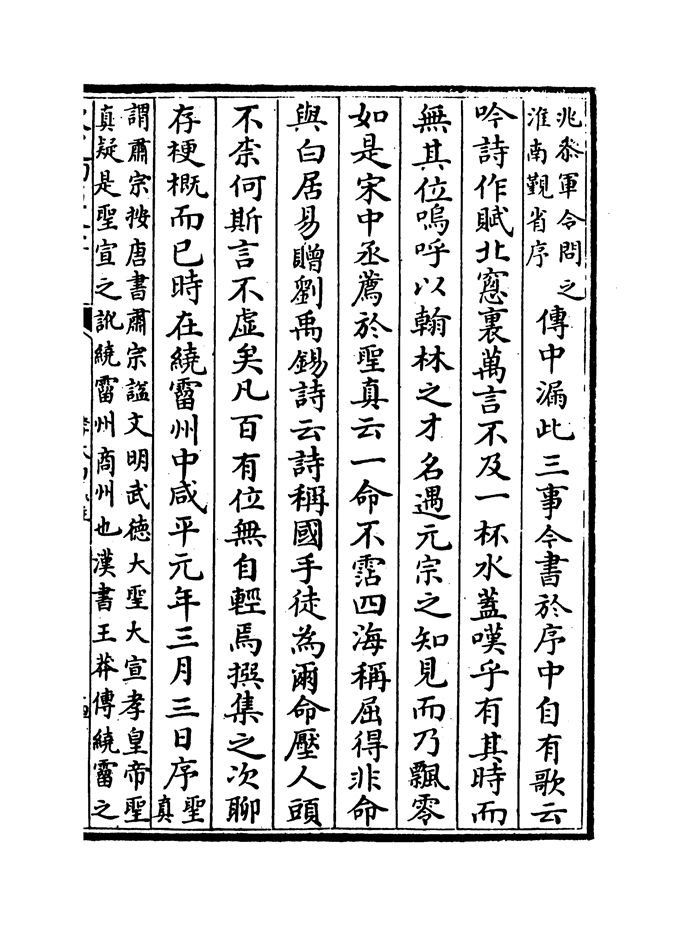 兆叅軍令問之
淮南觐省序
傳中漏此三事今書於序中自有歌云
吟詩作賦北窻裏萬言不及一杯水蓋嘆乎有其時而
無其位嗚呼以翰林之才名遇元宗之知見而乃飄零
如是宋中丞薦於聖真云一命不霑四海稱屈得非命
與白居易贈劉禹錫詩云詩稱國手徒為爾命壓人頭
不柰何斯言不虛矣凡百有位無自輕焉撰集之次聊
存梗概而已時在繞霤州中咸平元年三月三日序
聖
真
謂肅宗按唐書肅宗諡文明武德大聖大宣孝皇帝聖
真疑是聖宣之訛繞霤州商州也漢書王莽傳繞霤之